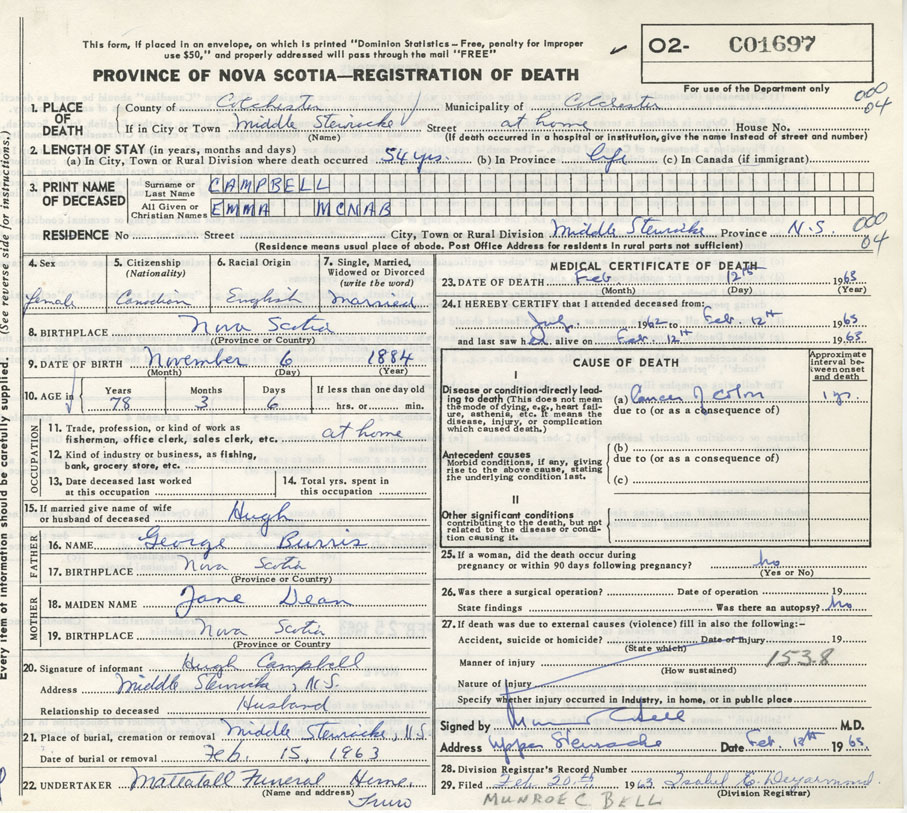 This form, if placed in an envelope, on which is printed "Dominion Statistics—Free, penalty for improper
use $50," and properly addressed will pass through the mail "FREE"
O2- C01697
PROVINCE OF NOVA SCOTIA—REGISTRATION OF DEATH
For use of the Department only
1. PLACE OF DEATH
County of Colchester Municipality of Colchester
000
04
If in City or Town Middle Stewiacke Street at home House No.
(Name) (If death occurred in a hospital or institution, give the name instead of street and number)
2. LENGTH OF STAY (in years, months and days)
(a) In City, Town or Rural Division where death occurred 54 yrs. (b) In Province life (c) In Canada (if immigrant)
3. PRINT NAME OF DECEASED
Surname or Last Name CAMPBELL
All Given or Christian Names EMMA MCNAB
RESIDENCE No Street City, Town or Rural Division Middle Stewiacke Province N.S.
000
04
(Residence means usual place of abode. Post Office Address for residents in rural parts not sufficient)
4. Sex female
5. Citizenship (Nationality) Canadian
6. Racial Origin English
7. Single, Married, Widowed or Divorced (write the word) Married
8. BIRTHPLACE Nova Scotia
(Province or Country)
9. DATE OF BIRTH November 6 1884
(Month) (Day) (Year)
10. AGE in Years 78 Months 3 Days 6 If less than one day old hrs. or min.
OCCUPATION
11. Trade, profession, or kind of work as fisherman, office clerk, sales clerk, etc. at home
12. Kind of industry or business, as fishing, bank, grocery store, etc.
13. Date deceased last worked at this occupation
14. Total yrs. spent in this occupation
15. If married give name of wife or husband of deceased Hugh
FATHER
16. NAME George Burris
17. BIRTHPLACE Nova Scotia
(Province or Country)
MOTHER
18. MAIDEN NAME Jane Dean
19. BIRTHPLACE Nova Scotia
(Province or Country)
20. Signature of informant Hugh Campbell
Address Middle Stewiacke, N.S.
Relationship to deceased Husband
21. Place of burial, cremation or removal Middle Stewiacke, N.S.
Date of burial or removal Feb. 15, 1963
22. UNDERTAKER Mattatall Funeral Home,
(Name and address) Truro
MEDICAL CERTIFICATE OF DEATH
23. DATE OF DEATH Feb 12th 1963
(Month) (Day) (Year)
24. I HEREBY CERTIFY that I attended deceased from:
July 1962 to Feb. 12th 1963
and last saw her alive on Feb. 12th 1963
CAUSE OF DEATH
Approximate interval between onset and death
I
Disease or condition directly leading to death (This does not mean the mode of dying, e.g., heart failure, asthenia, etc. It means the disease, injury, or complication which caused death.)
(a) Cancer of colon 1 yr.
due to (or as a consequence of)
Antecedent causes
Morbid conditions, if any, giving rise to the above cause, stating the underlying condition last.
(b)
due to (or as a consequence of)
(c)
II
Other significant conditions
contributing to the death, but not related to the disease or condition causing it.
25. If a woman, did the death occur during
pregnancy or within 90 days following pregnancy? no
(Yes or No)
26. Was there a surgical operation? Date of operation 19
State findings Was there an autopsy? no
27. If death was due to external causes (violence) fill in also the following:—
Accident, suicide or homicide? Date of Injury 19
(State which)
Manner of injury 153.8
(How sustained)
Nature of Injury
Specify whether injury occurred in Industry, in home, or in public place
Signed by M.D.
Address Upper Stewiacke Date Feb. 12th 1963
28. Division Registrar's Record Number
29. Filed Feb. 20th 1963 Isabel C. Deyarmond
(Division Registrar)
MUNROE C. BELL
Every item of information should be carefully supplied. (See reverse side for instructions.)